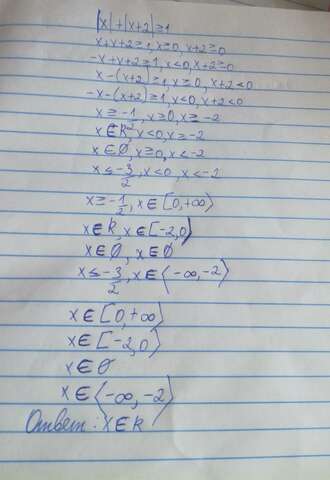 |x|+|x+2|≥1
x+x+2≥1, x≥0, x+2≥0
-x+x+2≥1, x<0, x+2≥0
x-(x+2)≥1, x≥0, x+2<0
-x-(x+2)≥1, x<0, x+2<0
x≥-1/2, x≥0, x≥-2
x∈R, x<0, x≥-2
x∈∅, x≥0, x<-2
x≤-3/2, x<0, x<-2
x≥-1/2, x∈[0,+∞⟩
x∈R, x∈[-2,0⟩
x∈∅, x∈∅
x≤-3/2, x∈⟨-∞,-2⟩
x∈[0,+∞⟩
x∈[-2,0⟩
x∈∅
x∈⟨-∞,-2⟩
Ответ: x∈R